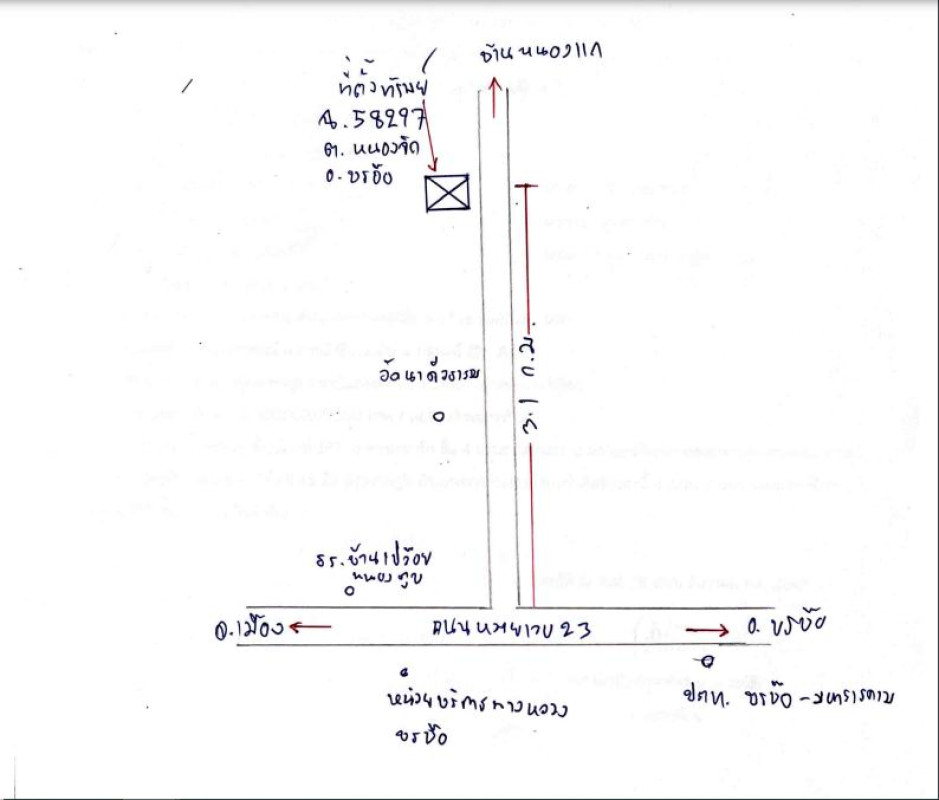 บ้านหนองแก
ที่ตั้งทรัพย์
ฉ.58297
ต. หนองจิก
อ. บรบือ
วัดนาดีวราราม
3.1 ก.ม.
รร.บ้านเปลือย
หนองตูบ
อ.เมือง
ถนนหมายเลข 23
อ. บรบือ
หน่วยบริการทางหลวง
บรบือ
ปตท. บรบือ - มหาสารคาม